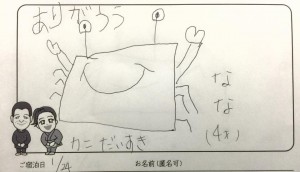 ありがとう
なな
(4才)
カニ だいすき
ご宿泊日 1/24
お名前(匿名可)